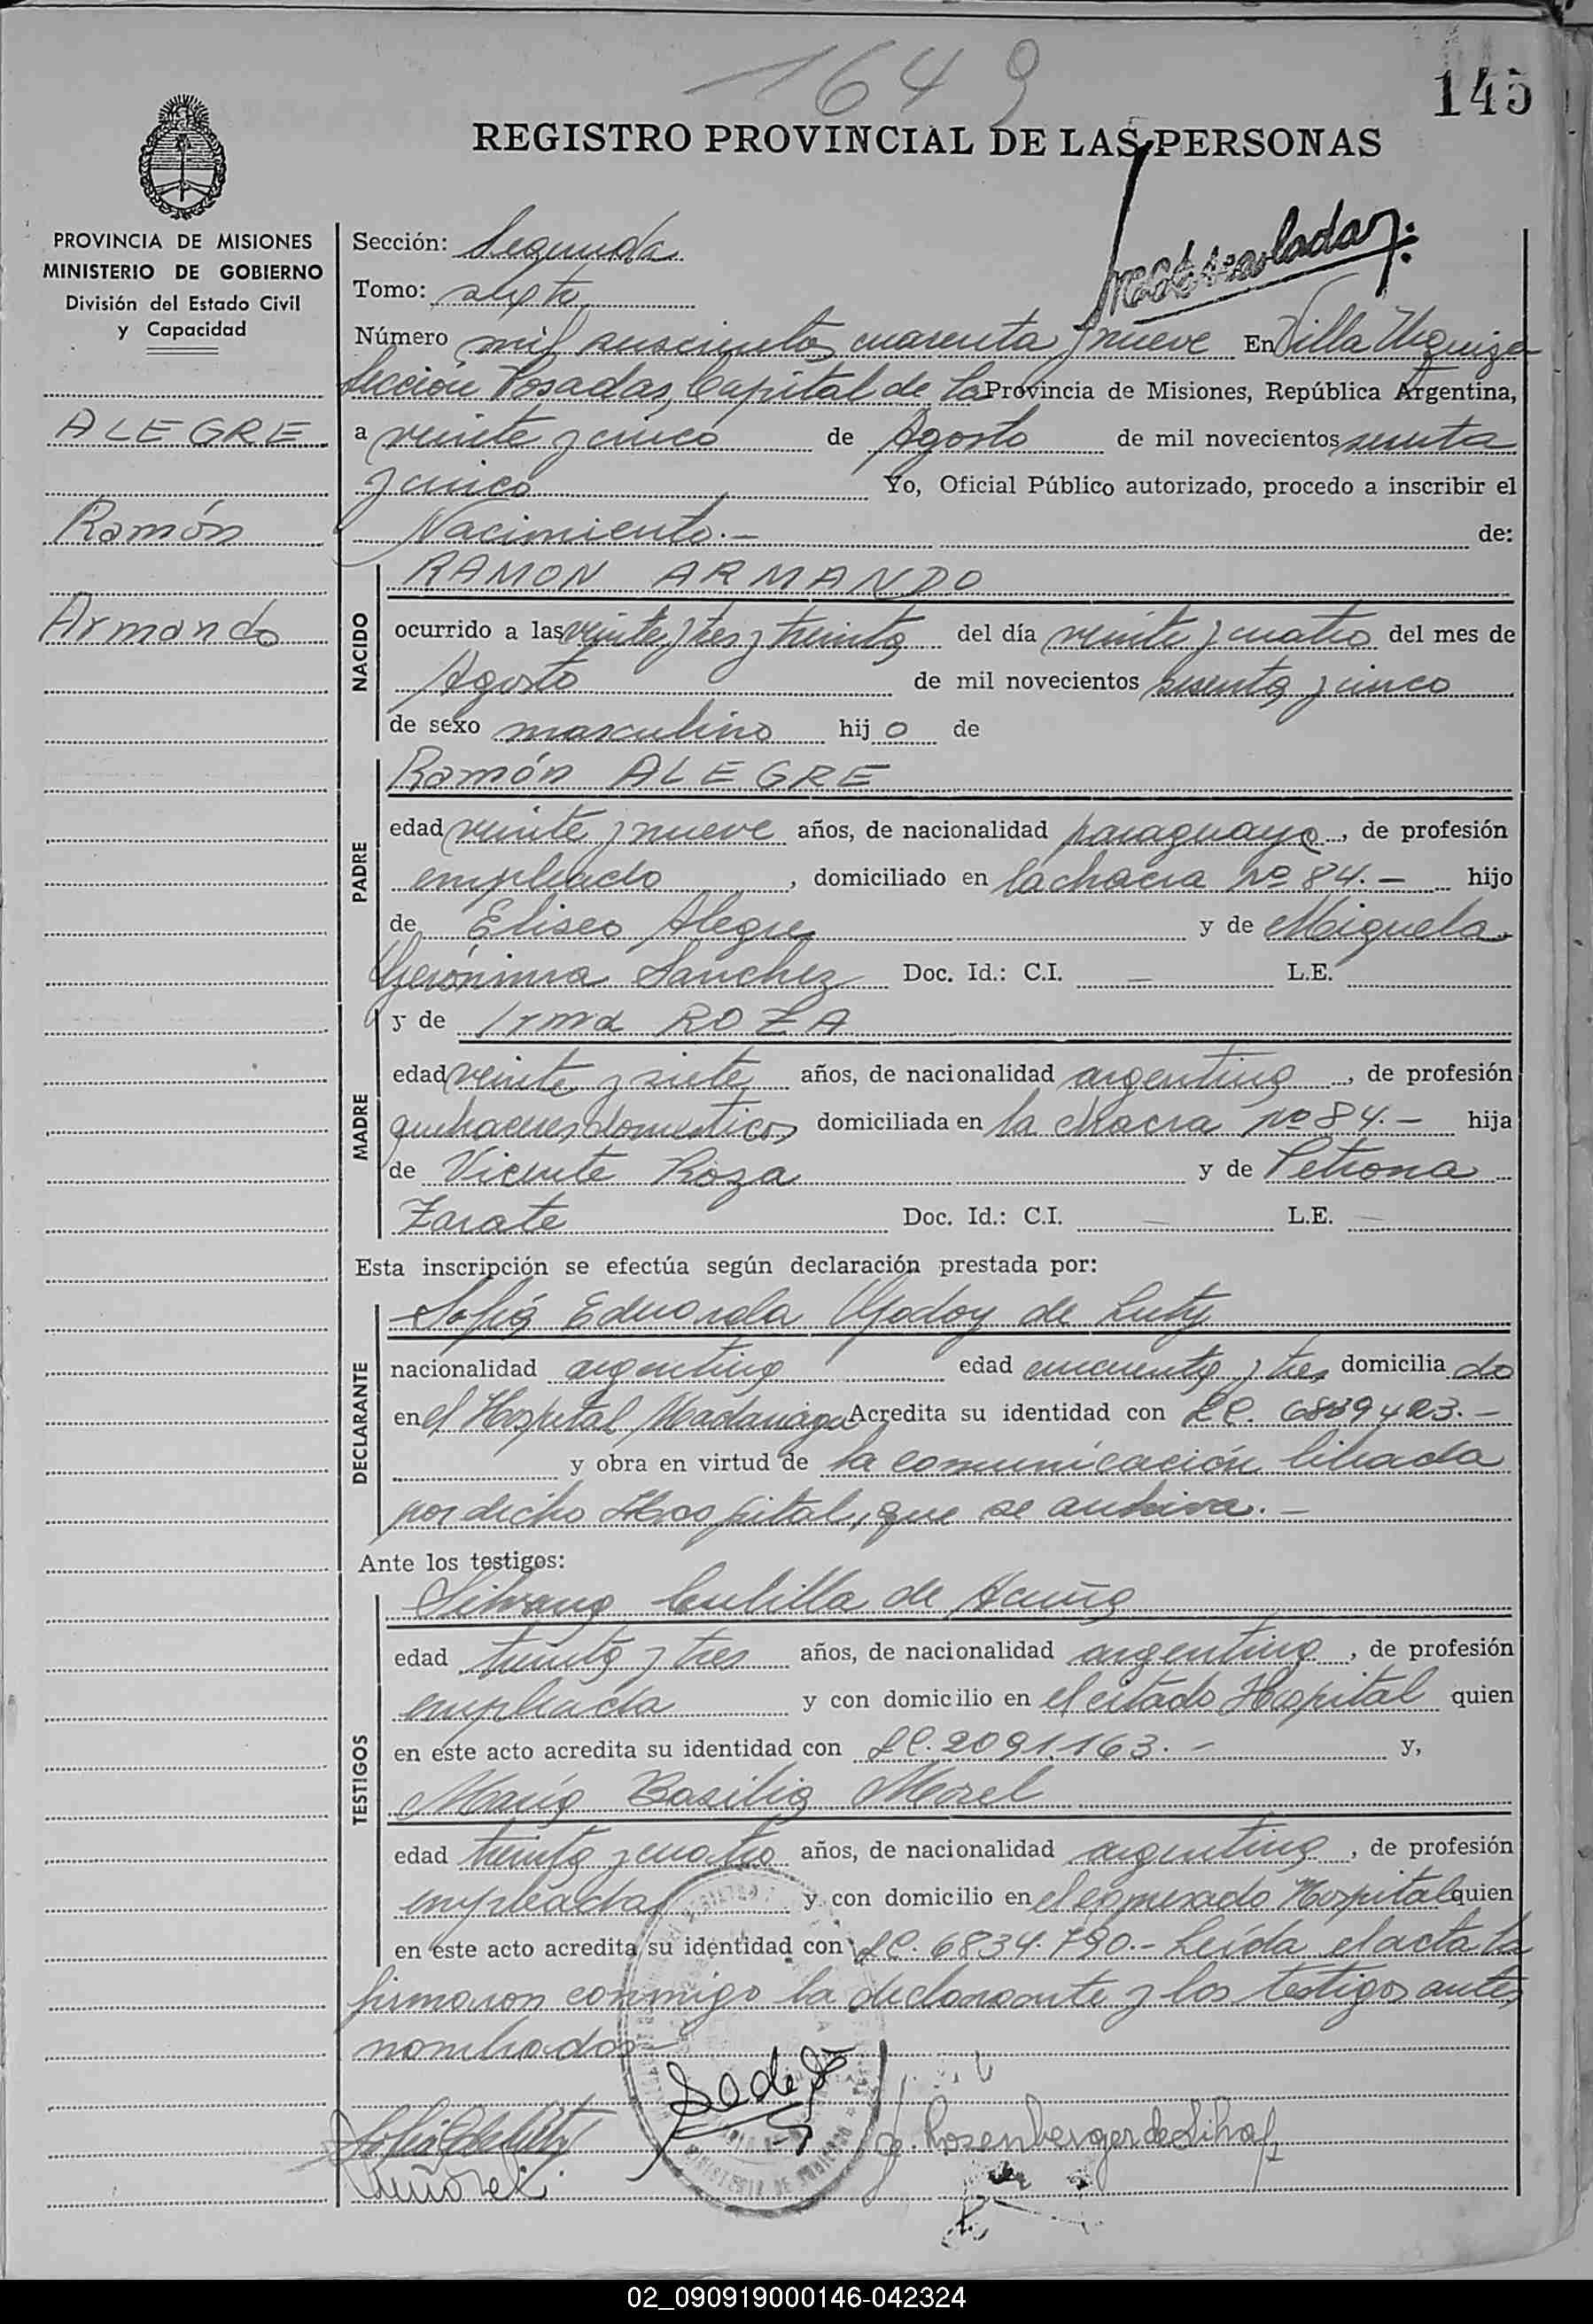 1649
145
REGISTRO PROVINCIAL DE LAS PERSONAS
PROVINCIA DE MISIONES
MINISTERIO DE GOBIERNO
División del Estado Civil
y Capacidad
ALEGRE
Ramón
Armando
Sección: Segunda
Tomo: sexto
Número mil seiscientos cuarenta y nueve En Villa Urquiza
Sección Posadas, Capital de la Provincia de Misiones, República Argentina,
a veinte y cinco de Agosto de mil novecientos sesenta
y cinco Yo, Oficial Público autorizado, procedo a inscribir el
Nacimiento.- de:
NACIDO
RAMON ARMANDO
ocurrido a las veinte y tres y treinta del día veinte y cuatro del mes de
Agosto de mil novecientos sesenta y cinco
de sexo masculino hijo de
PADRE
Ramón ALEGRE
edad veinte y nueve años, de nacionalidad paraguaya, de profesión
empleado, domiciliado en la chacra Nº 84.- hijo
de Eliseo Alegre y de Miguela
Gerónima Sanchez Doc. Id.: C.I. — L.E.
MADRE
y de Irma ROZA
edad veinte y siete años, de nacionalidad argentina, de profesión
quehaceres domesticos domiciliada en la chacra Nº 84.- hija
de Vicente Roza y de Petrona
Zarate Doc. Id.: C.I. — L.E. —
Esta inscripción se efectúa según declaración prestada por:
DECLARANTE
Sofía Eduarda Godoy de Luty
nacionalidad argentina edad cincuenta y tres domiciliado
en el Hospital Madariaga Acredita su identidad con LC.
y obra en virtud de la comunicación librada
por dicho Hospital, que se archiva.-
Ante los testigos:
TESTIGOS
Silvana Cubilla de Acuña
edad treinta y tres años, de nacionalidad argentina, de profesión
empleada y con domicilio en el citado Hospital quien
en este acto acredita su identidad con LC. 2091.163.- y,
María Basilia Morel
edad treinta y cuatro años, de nacionalidad argentina, de profesión
empleada y con domicilio en el expresado Hospital quien
en este acto acredita su identidad con LC. 6834.790.- Leída el acta la
firmaron conmigo la declarante y los testigos antes
nombrados-
Rosenberger de
02_090919000146-042324